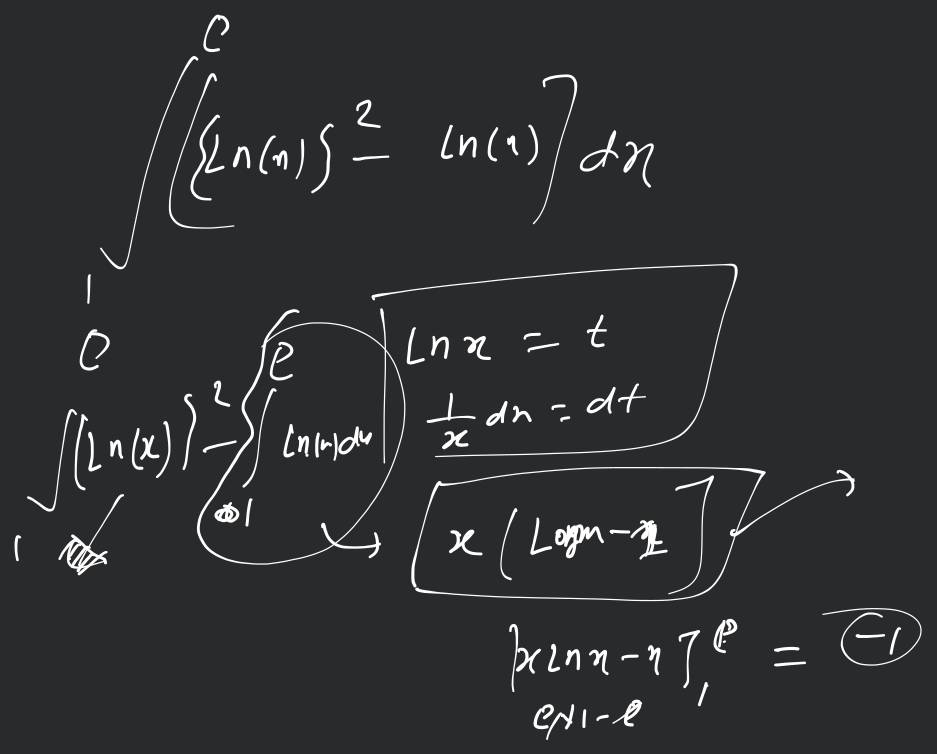 ∫₁ᵉ [{Ln(x)}² − Ln(x)] dx
∫₁ᵉ (Ln(x)}² − {∫₁ᵉ Ln(x)dx
Ln x = t
1/x dx = dt
x (Log x − 1]
[x Ln x − x]₁ᵉ = −1
e×1−e